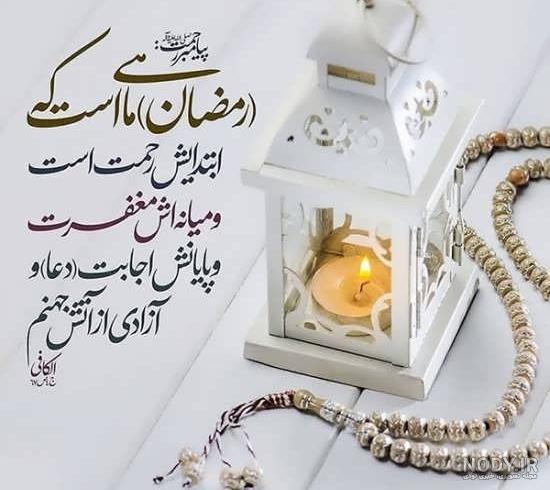 پیامبر رحمت صلی الله علیه و آله:
(رمضان) ماهی است که
ابتدایش رحمت است
و میانه اش مغفرت
و پایانش اجابت (دعا) و
آزادی از آتش جهنم
الکافی
NODY.IR